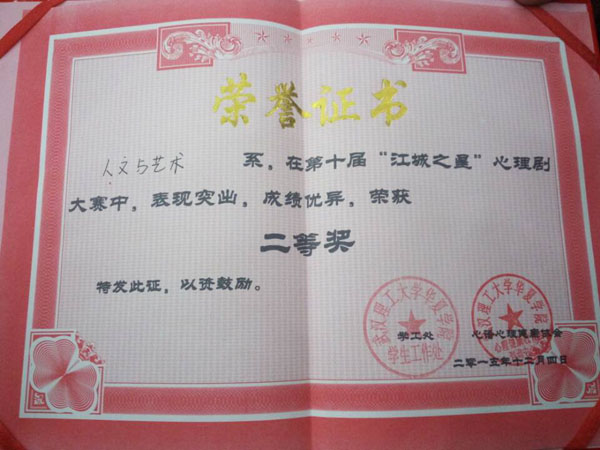 荣誉证书
人文与艺术 系，在第十届“江城之星”心理剧
大赛中，表现突出，成绩优异，荣获
二等奖
特发此证，以资鼓励。
武汉理工大学华夏学院
学生工作处
武汉理工大学华夏学院
学工处
心语心理健康协会
二零一五年十二月四日